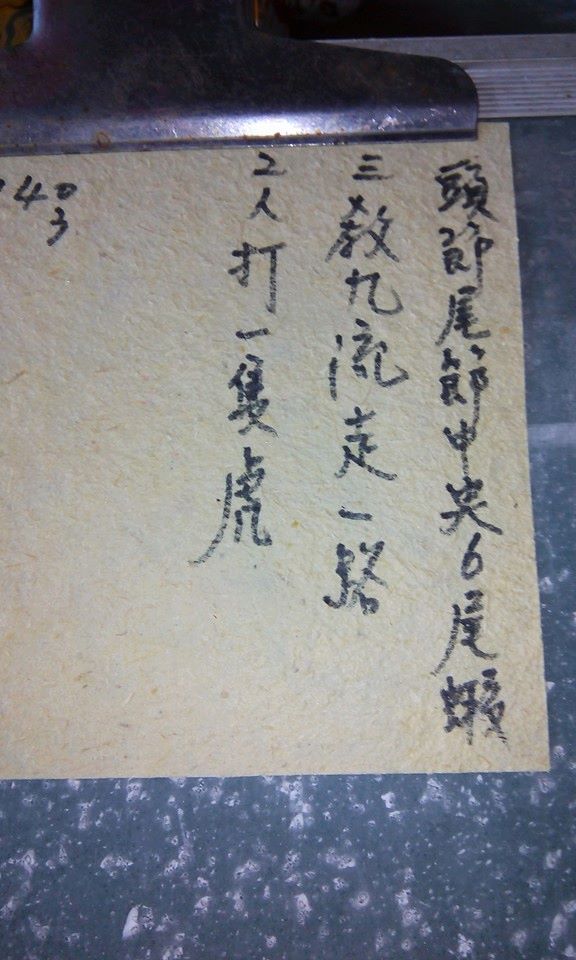 頭節尾節中央6尾蝦
三教九流走一路
2人打一隻虎
40
3